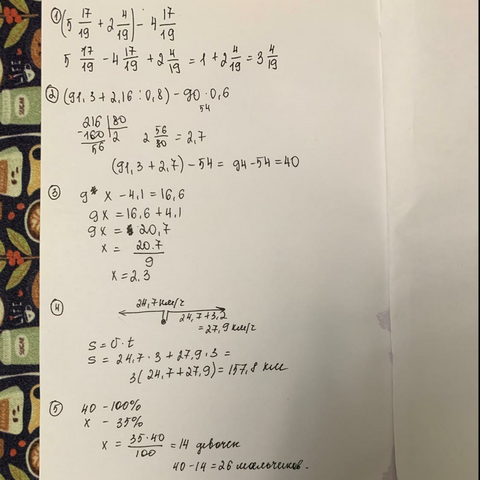 1) (5 17/19 + 2 4/19) - 4 17/19
5 17/19 - 4 17/19 + 2 4/19 = 1 + 2 4/19 = 3 4/19
2) (91,3 + 2,16 : 0,8) - 90 · 0,6
54
216 | 80
-160 | 2
56
2 56/80 = 2,7
(91,3 + 2,7) - 54 = 94 - 54 = 40
3) 9* x - 4,1 = 16,6
9x = 16,6 + 4.1
9x = 20,7
x = 20.7/9
x = 2.3
4) 24,7 км/ч
24,7 + 3,2
= 27,9 км/ч
S = υ · t
S = 24,7 · 3 + 27,9 · 3 =
3(24,7 + 27,9) = 157,8 км
5) 40 - 100%
x - 35%
x = 35·40/100 = 14 девочек
40 - 14 = 26 мальчиков.